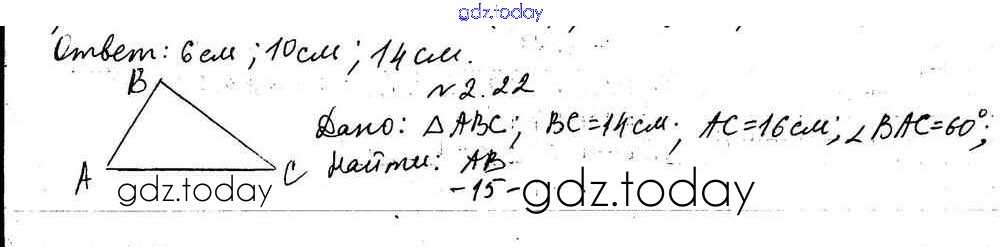 gdz.today
Ответ: 6 см; 10 см; 14 см.
№2.22
B
Дано: △ABC; BC=14 см; AC=16 см; ∠BAC=60°;
Найти: AB.
A C
-15-
gdz.today gdz.today